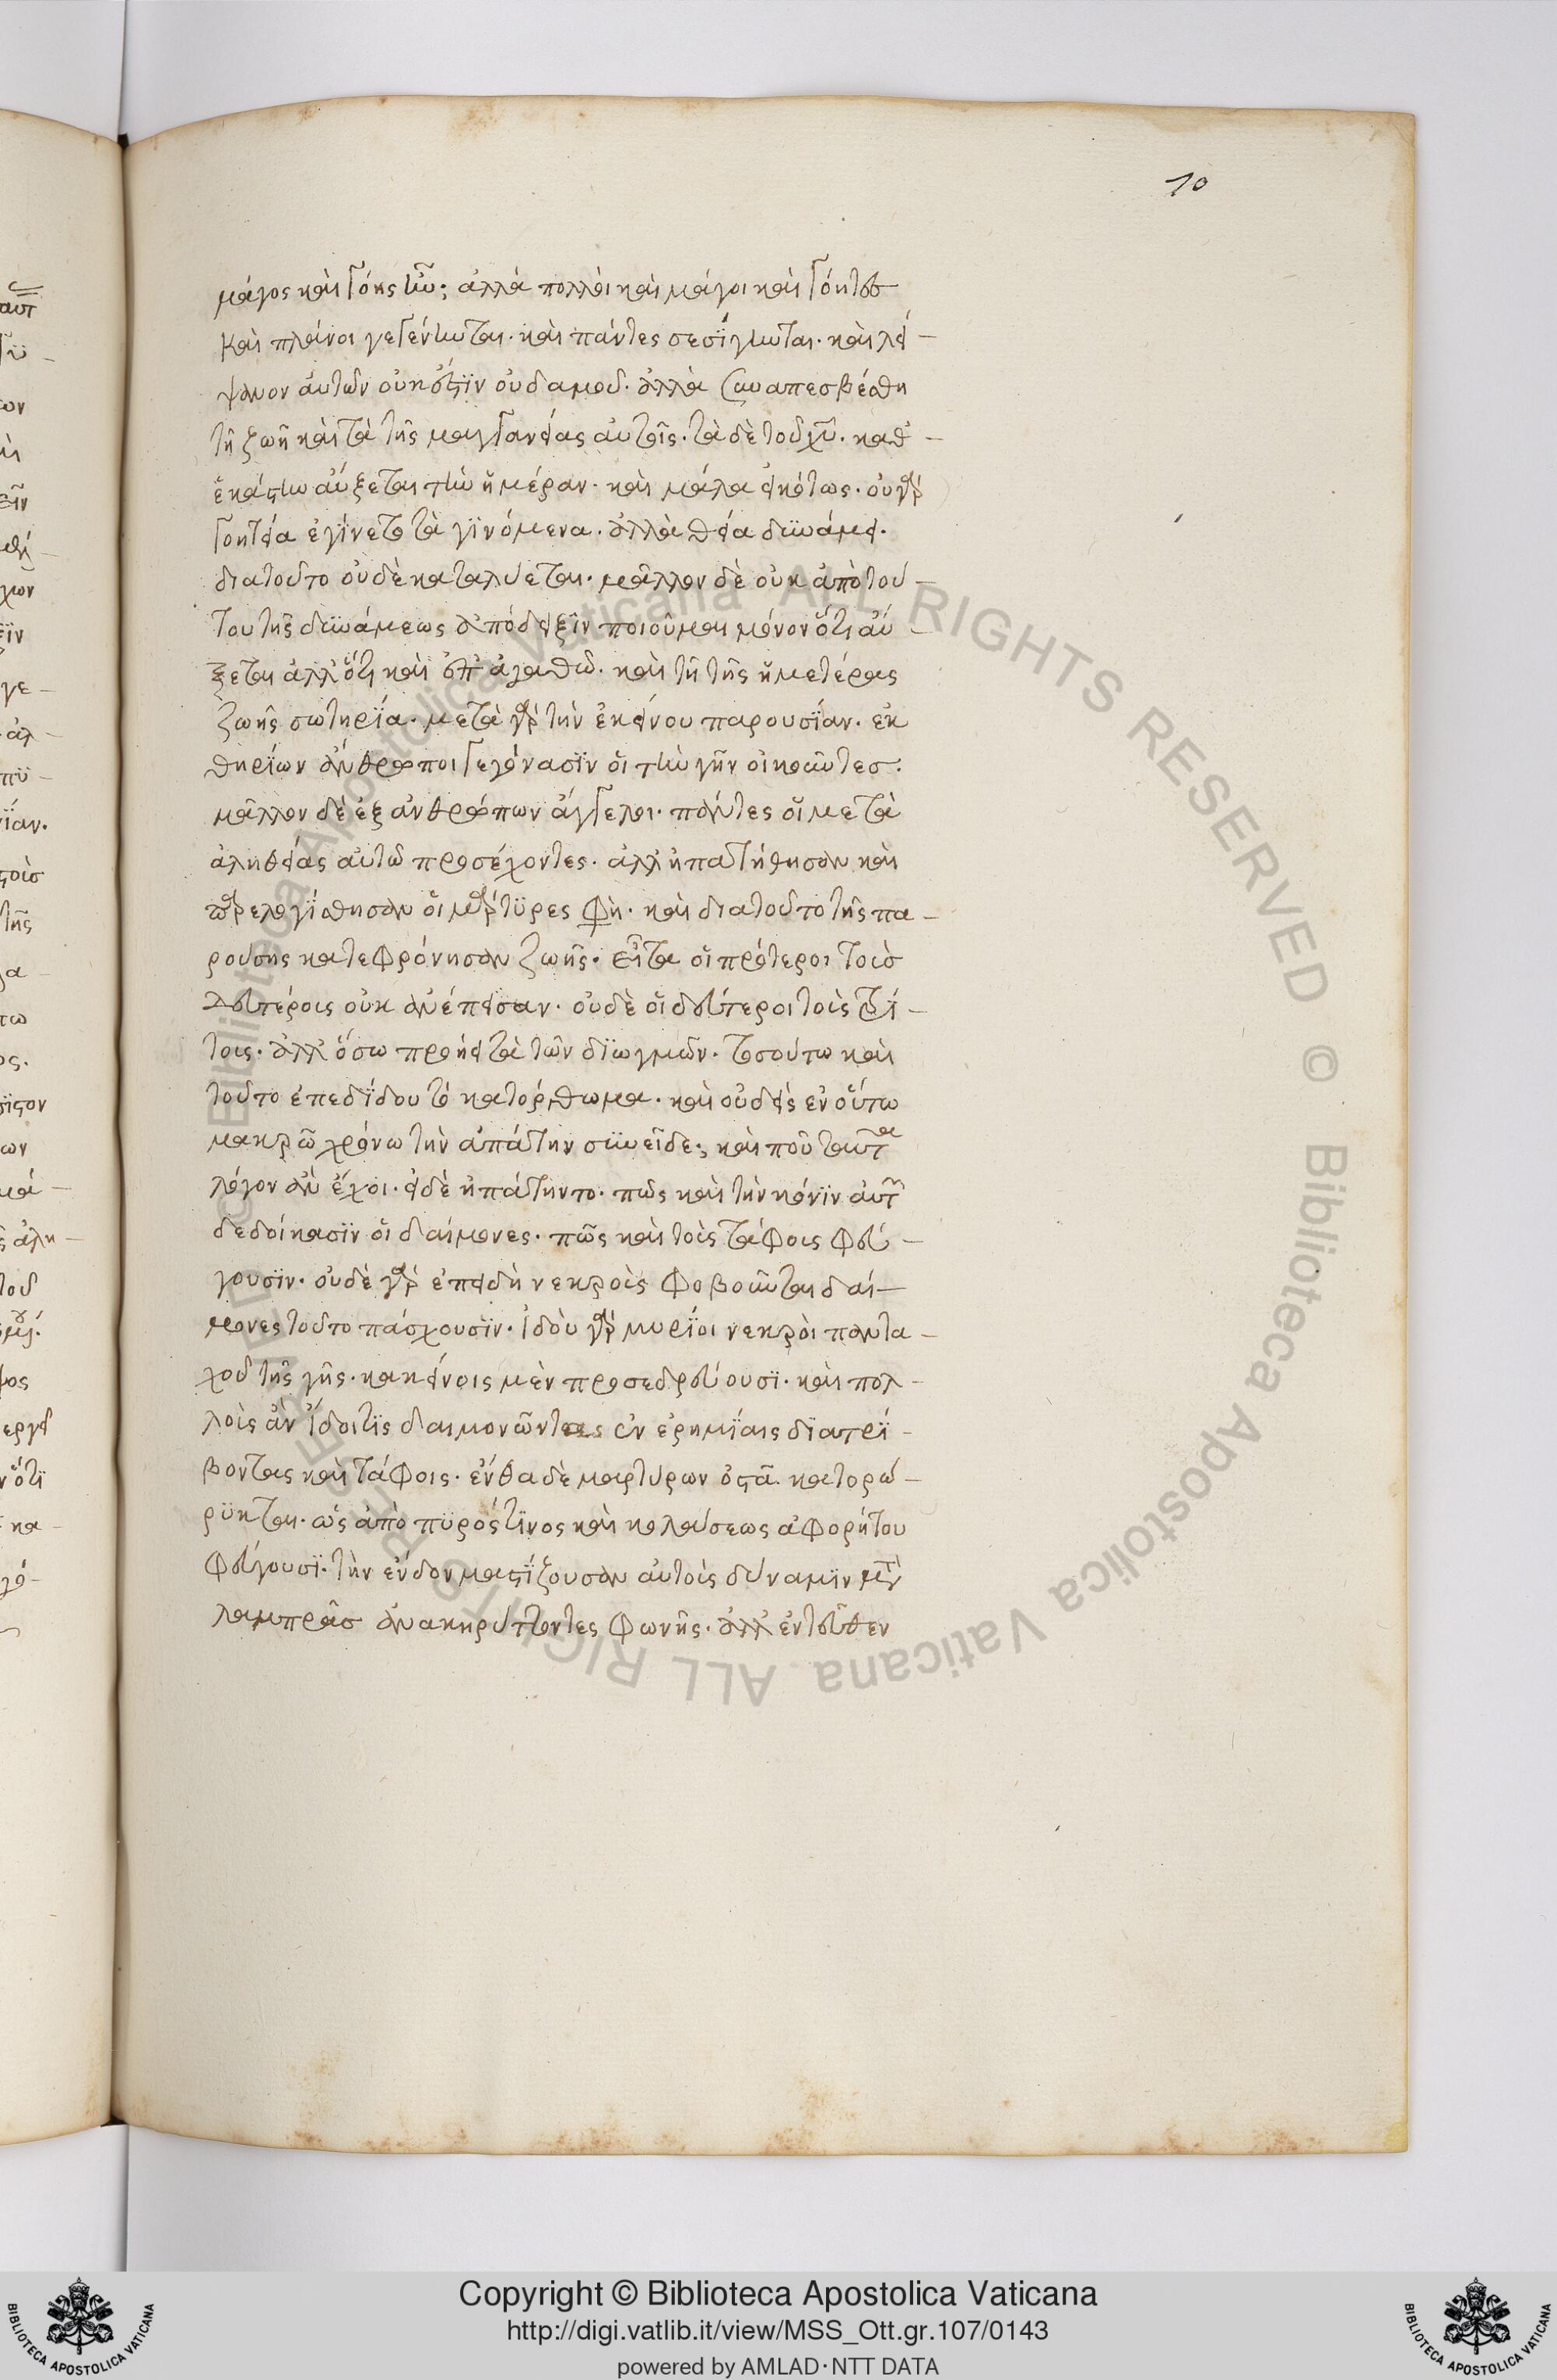 10
μάγος καὶ γόης ἦν; ἀλλὰ πολλοὶ καὶ μάγοι καὶ γόητες
καὶ πλάνοι γεγένηνται· καὶ πάντες σεσίγηνται· καὶ λεί-
ψανον αὐτῶν οὐκ ἔστϊν οὐδαμοῦ· ἀλλὰ συναπεσβέσθη
τῆ ζωῆ καὶ τὰ τῆς μαγγανείας αὐτοῖς· τὰ δὲ τοῦ χῦ· καθ' -
ἑκάστην αὔξεται τὴν ἡμέραν· καὶ μάλα εἰκότως· οὐ γὰρ
γοητεία ἐγίνετο τὰ γϊνόμενα· ἀλλὰ θεία δυνάμει·
διατοῦτο οὐδὲ καταλύεται· μᾶλλον δὲ οὐκ ἀπὸ τού-
του τῆς δυνάμεως ἀπόδειξϊν ποιοῦμαι μόνον ὅτι αὔ-
ξεται ἀλλ' ὅτι καὶ ἐπ' ἀγαθῶ· καὶ τῆ τῆς ἡμετέρας
ζωῆς σωτηρΐα· μετὰ γὰρ τὴν ἐκείνου παρουσΐαν· ἐκ
θηρΐων ἄνθρωποι γεγόνασϊν οἱ τὴν γῆν οἰκοῦντες·
μᾶλλον δὲ ἐξ ἀνθρώπων ἄγγελοι· πάντες οἱ μετὰ
ἀληθείας αὐτῶ προσέχοντες· ἀλλ' ἠπατήθησαν καὶ
παρελογίσθησαν οἱ μάρτυρες φησὶ· καὶ διατοῦτο τῆς πα-
ρούσης κατεφρόνησαν ζωῆς· εἶτα οἱ πρότεροι τοῖς
δευτέροις οὐκ ἀνέπεισαν· οὐδὲ οἱ δεύτεροι τοῖς τρί-
τοις· ἀλλ' ὅσω προήει τὰ τῶν δϊωγμῶν· τοσούτω καὶ
τοῦτο ἐπεδΐδου τὸ κατόρθωμα· καὶ οὐδεὶς ἐν οὕτω
μακρῶ χρόνω τὴν ἀπάτην συνεῖδε; καὶ ποῦ ταῦτα
λόγον ἂν ἔχοι· εἰ δὲ ἠπάτηντο· πῶς καὶ τὴν κόνϊν αὐτῶν
δεδοίκασϊν οἱ δαίμονες· πῶς καὶ τοὺς τάφους φεύ-
γουσϊν· οὐδὲ γὰρ ἐπειδὴ νεκροὺς φοβοῦνται δαί-
μονες τοῦτο πάσχουσϊν· ἰδοὺ γὰρ μυρΐοι νεκροὶ παντα-
χοῦ τῆς γῆς· κἀκείνοις μὲν προσεδρεύουσϊ· καὶ πολ-
λοὺς ἂν ἴδοι τϊς δαιμονῶντας ἐν ἐρημΐαις δϊατρΐ-
βοντας καὶ τάφοις· ἔνθα δὲ μαρτύρων ὀστᾶ· κατορώ-
ρυκται· ὡς ἀπὸ πυρός τϊνος καὶ κολάσεως ἀφορήτου
φεύγουσϊ· τὴν ἔνδον μαστΐζουσαν αὐτοὺς δύναμϊν μετὰ
λαμπρᾶς ἀνακηρύττοντες φωνῆς· ἀλλ' ἐντεῦθεν
Copyright © Biblioteca Apostolica Vaticana
http://digi.vatlib.it/view/MSS_Ott.gr.107/0143
powered by AMLAD·NTT DATA